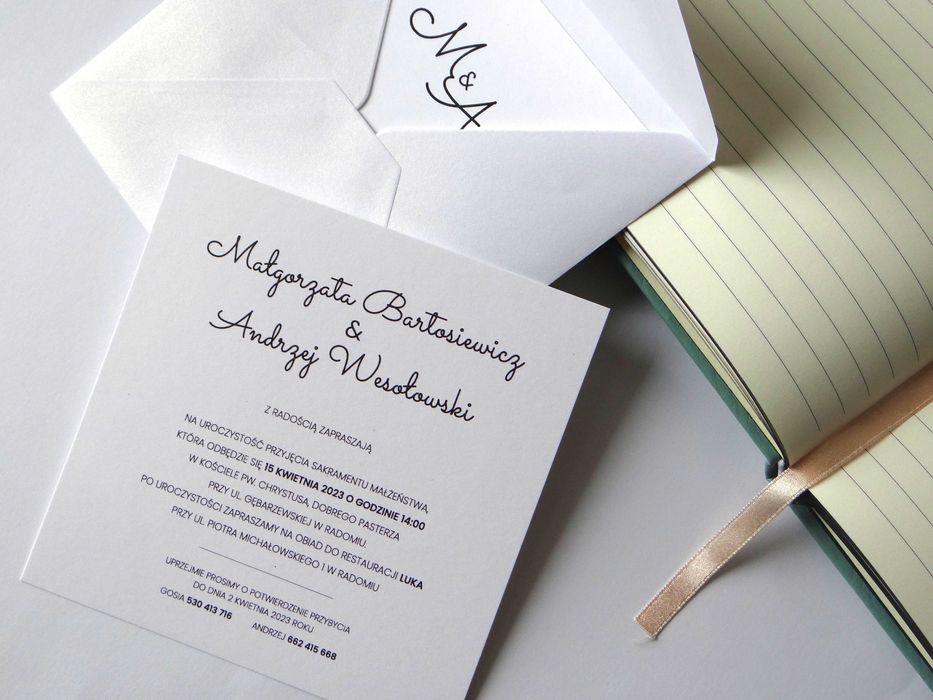 M
&
A
Małgorzata Bartosiewicz
&
Andrzej Wesołowski
Z RADOŚCIĄ ZAPRASZAJĄ
NA UROCZYSTOŚĆ PRZYJĘCIA SAKRAMENTU MAŁŻEŃSTWA,
KTÓRA ODBĘDZIE SIĘ 15 KWIETNIA 2023 O GODZINIE 14:00
W KOŚCIELE PW. CHRYSTUSA DOBREGO PASTERZA
PRZY UL. GĘBARZEWSKIEJ W RADOMIU.
PO UROCZYSTOŚCI ZAPRASZAMY NA OBIAD DO RESTAURACJI LUKA
PRZY UL. PIOTRA MICHAŁOWSKIEGO 1 W RADOMIU
UPRZEJMIE PROSIMY O POTWIERDZENIE PRZYBYCIA
DO DNIA 2 KWIETNIA 2023 ROKU
GOSIA 530 413 716 ANDRZEJ 662 415 668